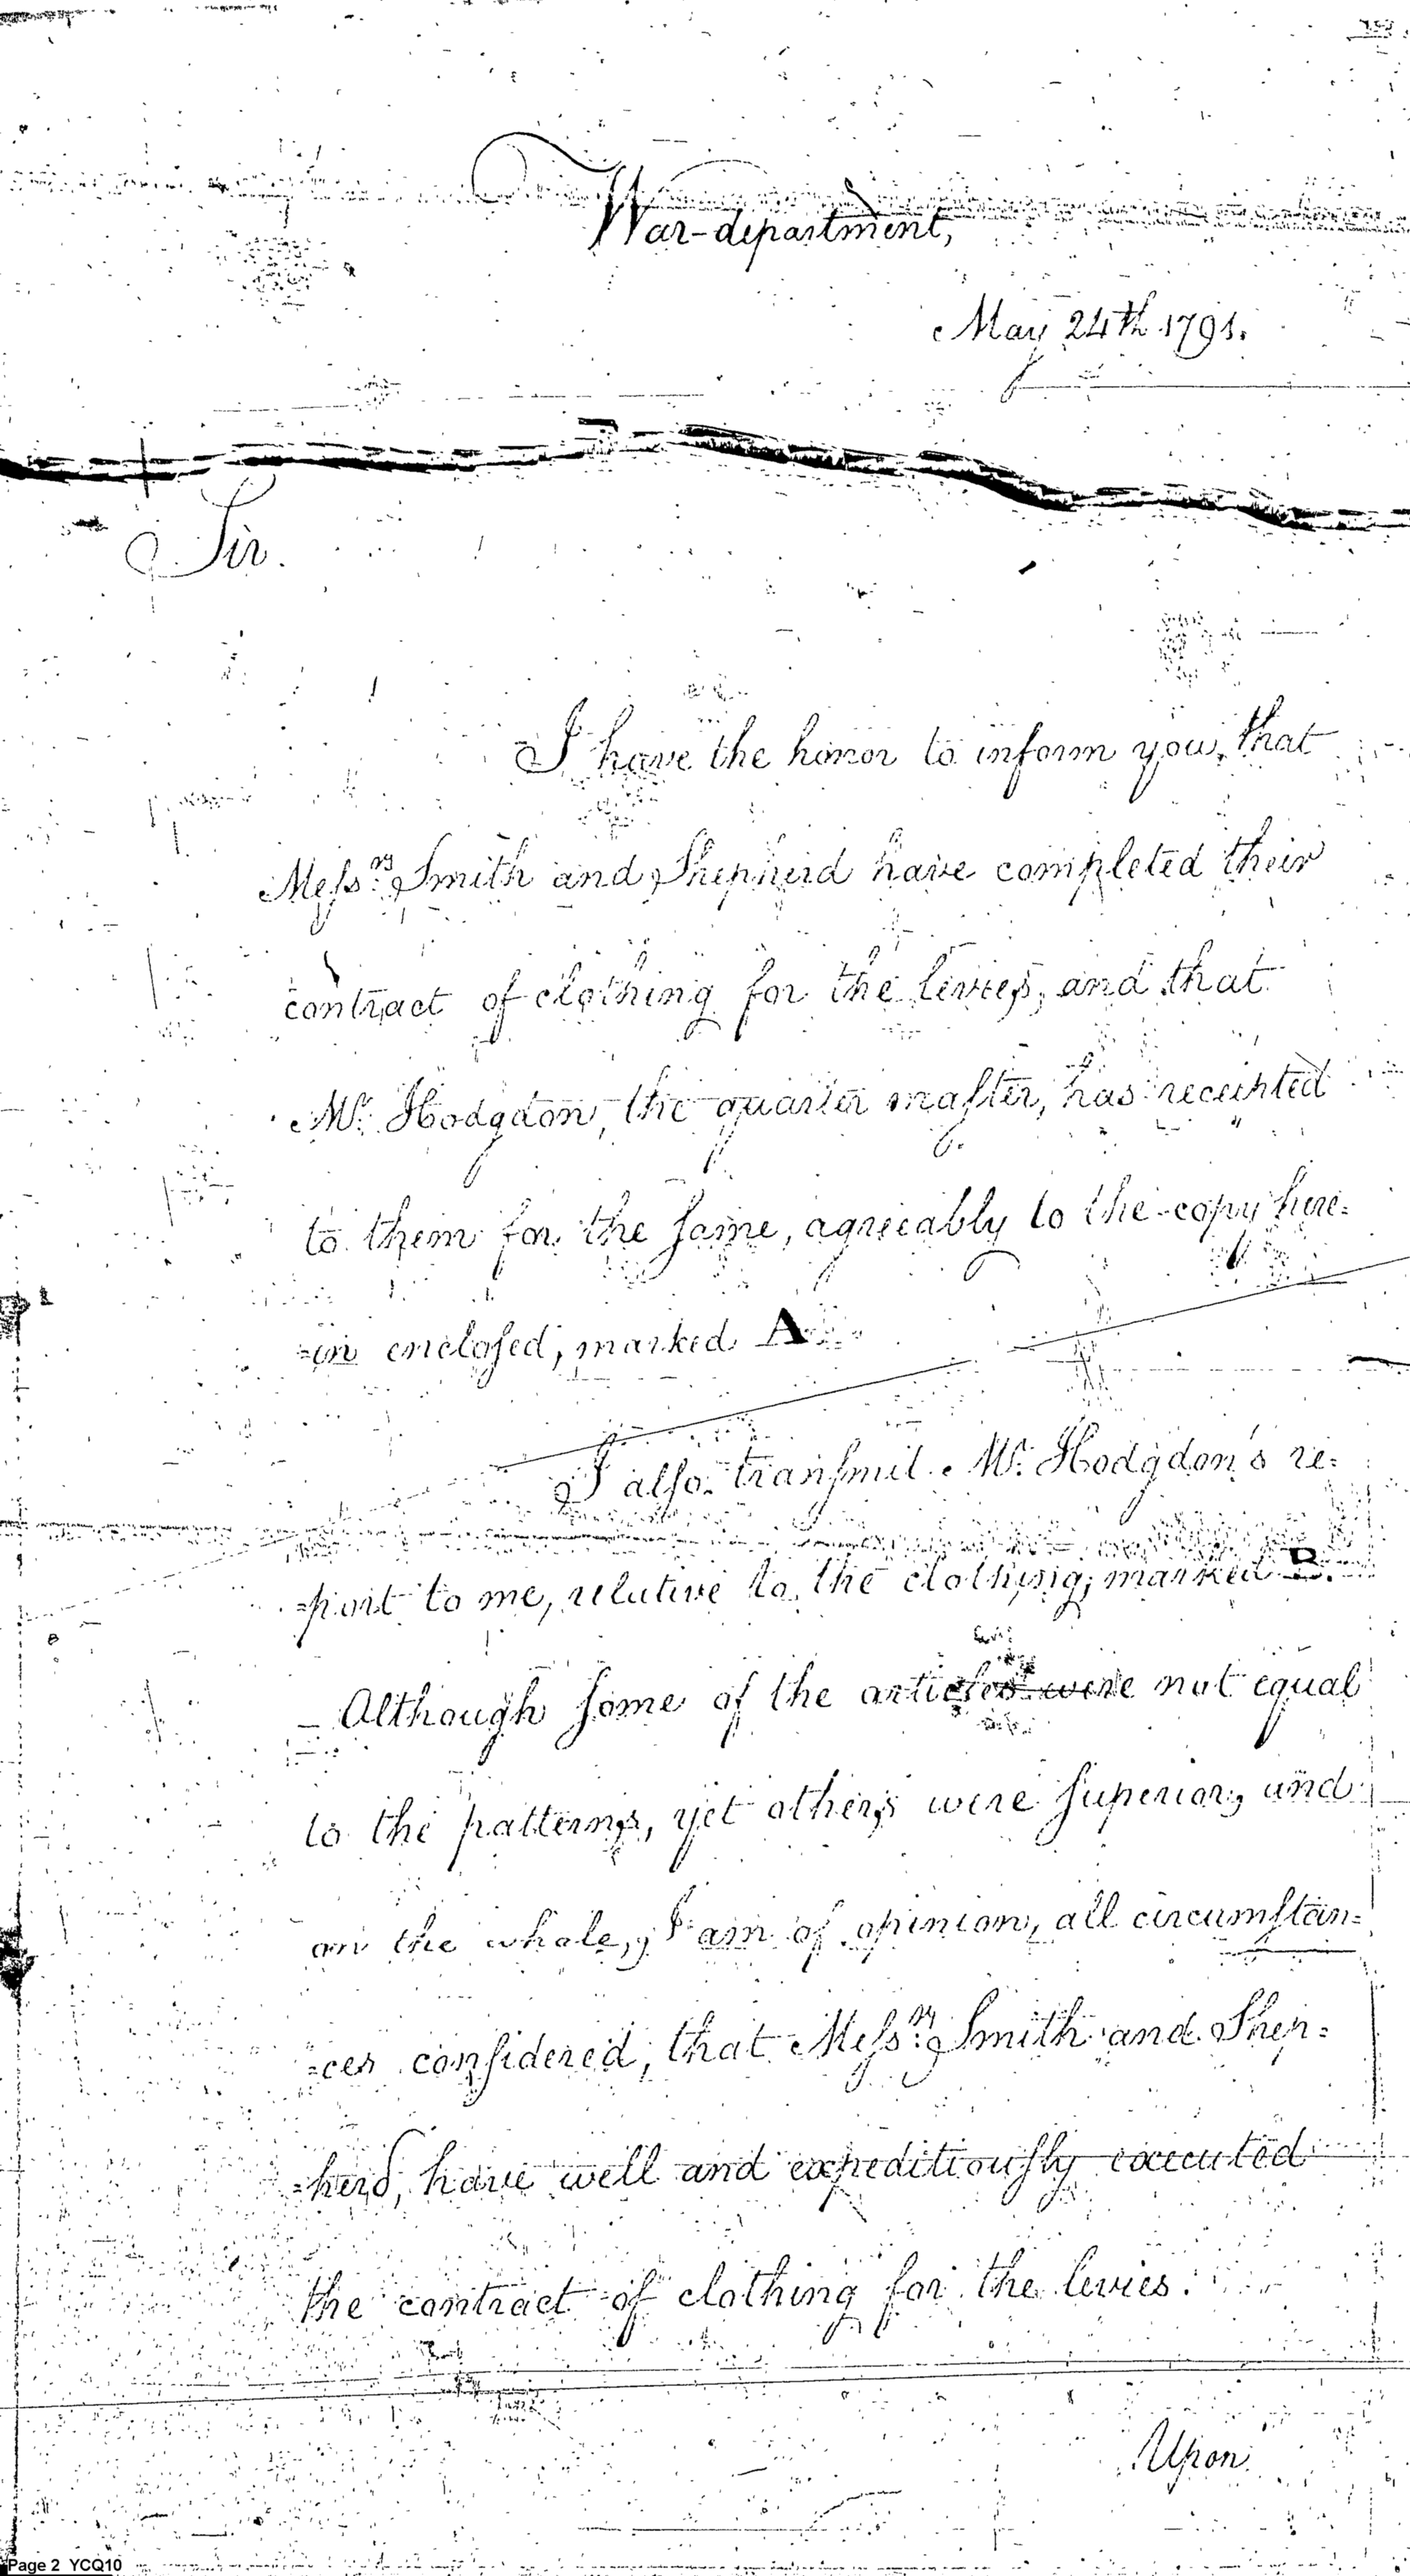 War-department,
May 24th 1791.
Sir.
I have the honor to inform you, that
Messrs. Smith and Shepherd have completed their
contract of clothing for the levies, and that
Mr. Hodgdon, the quarter master, has receipted
to them for the same, agreeably to the copy here=
=in enclosed, marked A
I also transmit Mr. Hodgdon's re=
=port to me, relative to the clothing, marked B.
– Although some of the articles were not equal
to the patterns, yet others were superior, and
on the whole, I am of opinion, all circumstan=
=ces considered, that Messrs. Smith and Shep=
=herd, have well and expeditiously executed
the contract of clothing for the levies.
Upon
Page 2 YCQ10